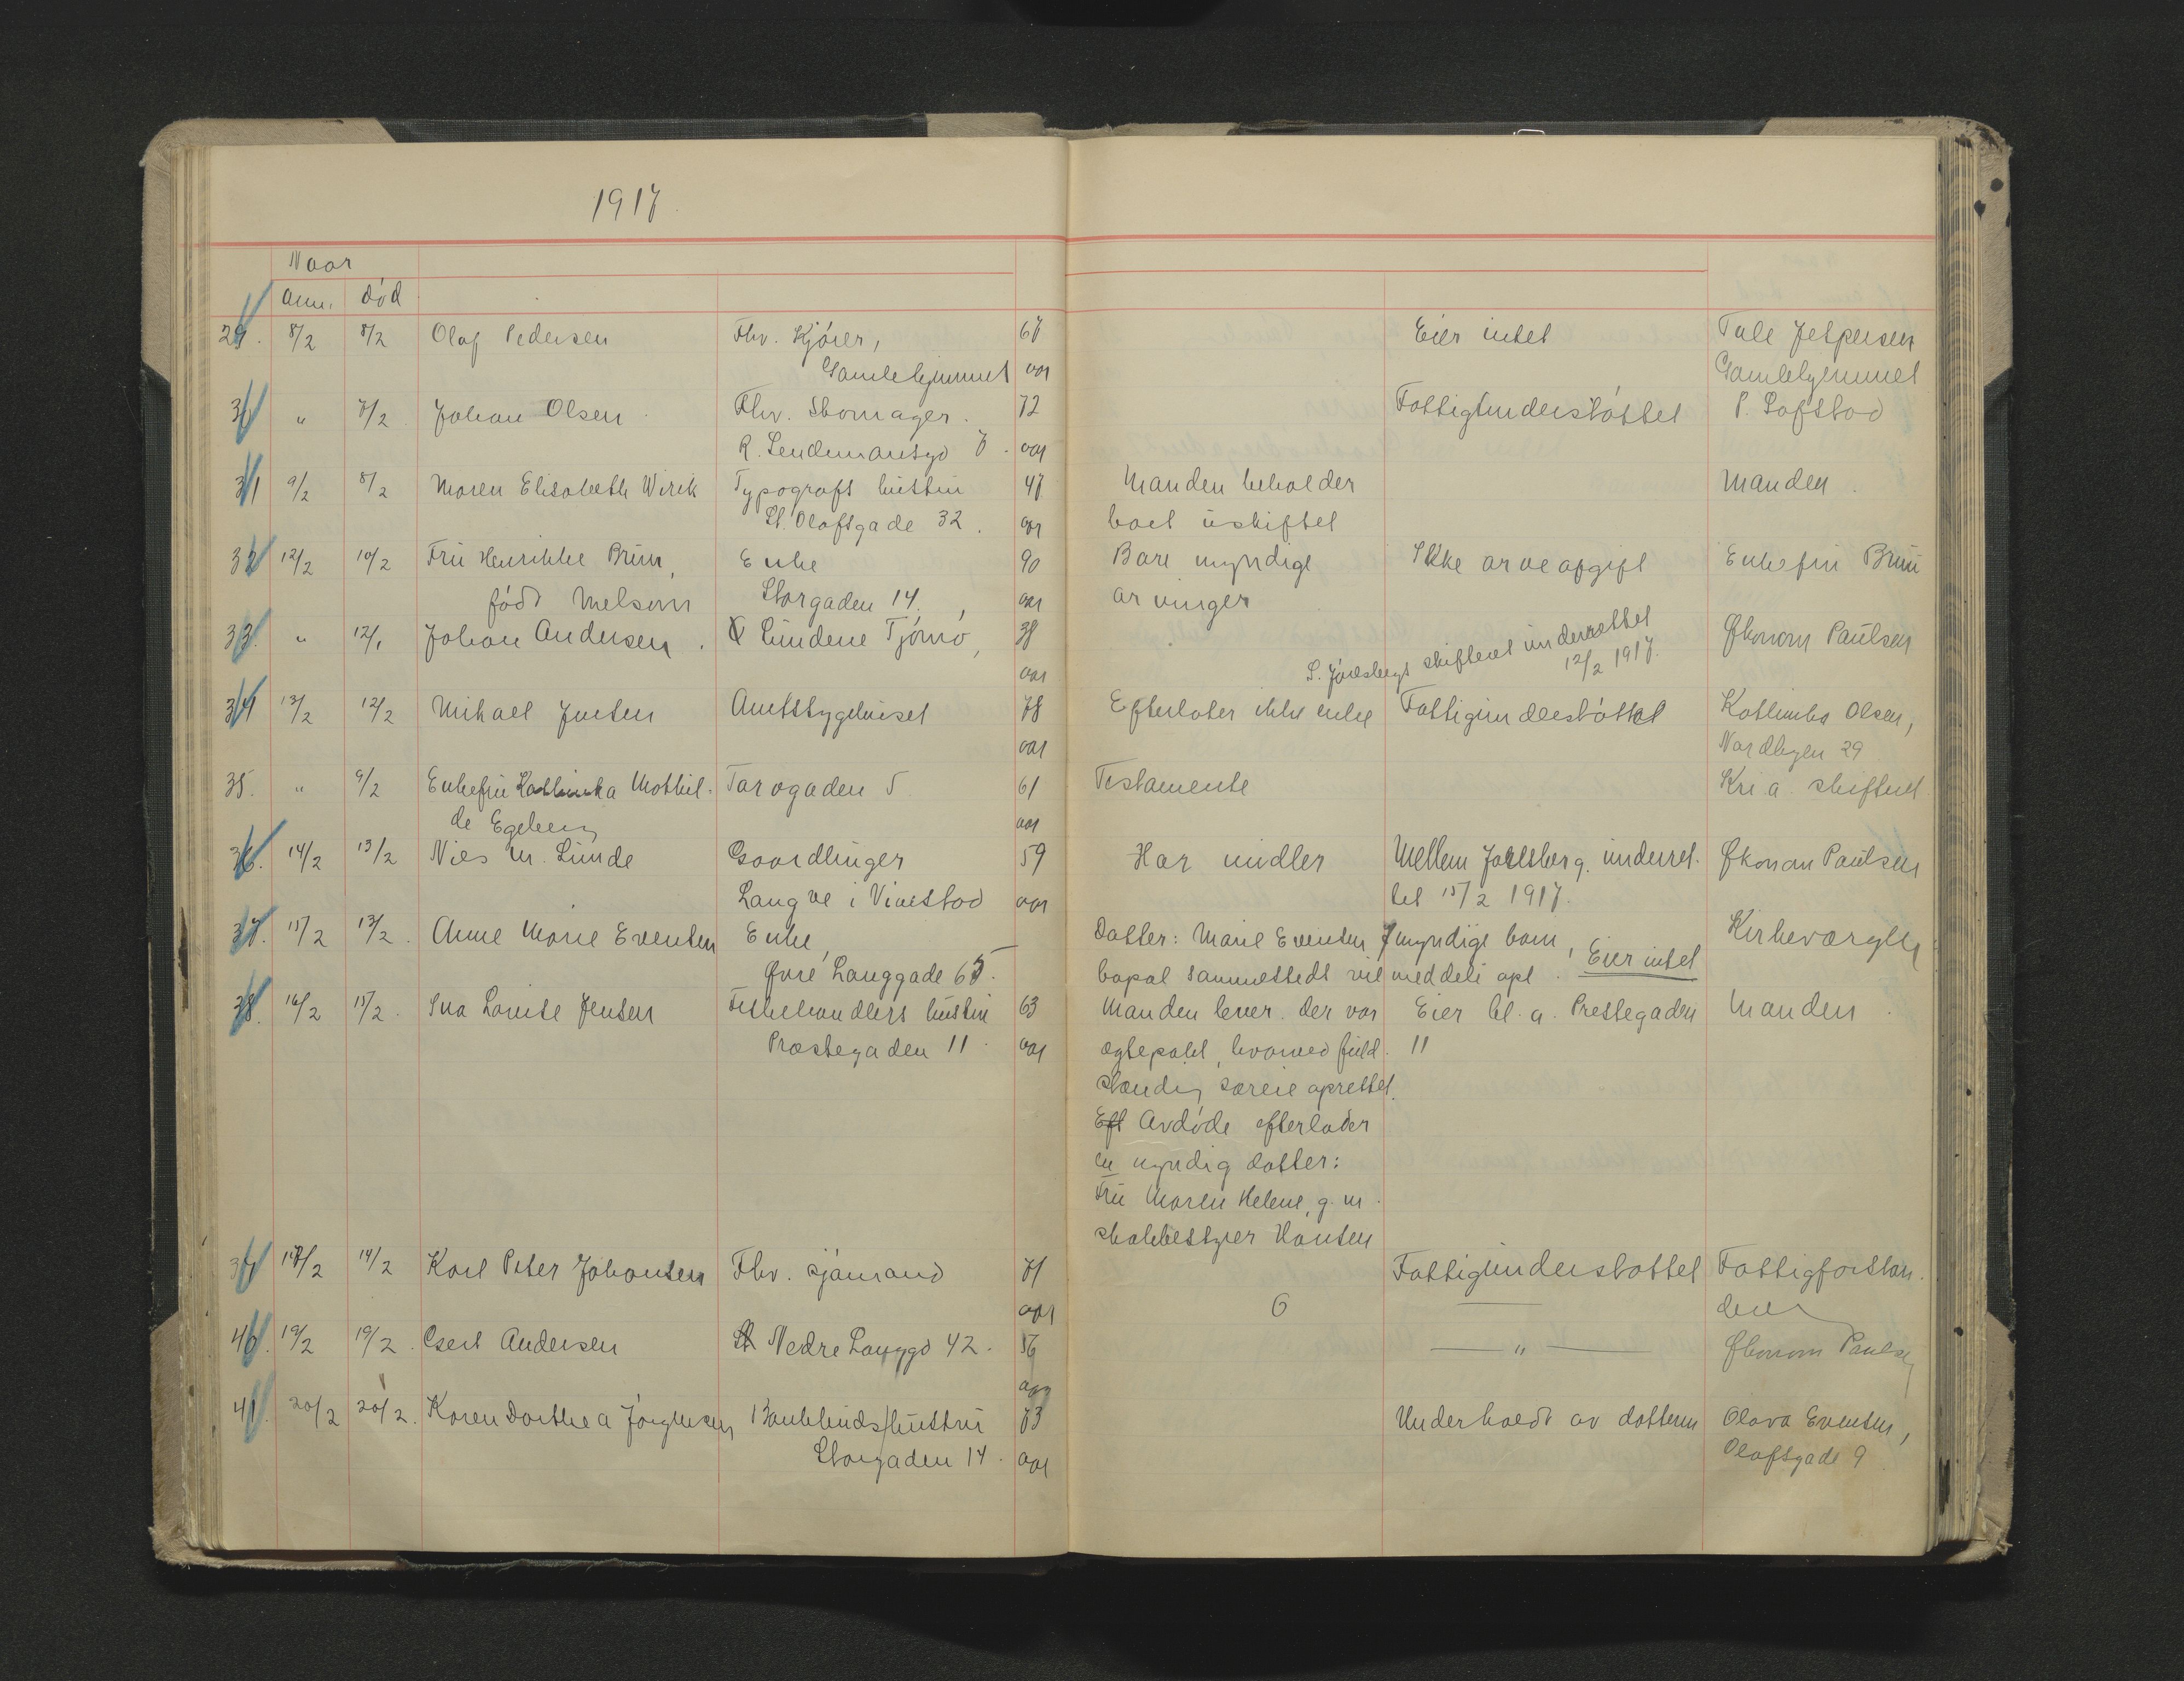 1917.
Naar
Anm. død
29. 8/2 8/2 Olaf Pedersen Fhv. kjører, 67 Eier intet Tale Jespersen
Gamlehjemmet aar Gamlehjemmet
30 " 7/2 Johan Olsen Fhv. skomager. 72 Fattigunderstøttet P. Lofstad
R. Lendemansgd 7. aar
31 9/2 8/2 Maren Elisabeth Wirik Typografs hustru 47 Manden beholder Manden.
St. Olafsgade 32. aar boet uskiftet
32 12/2 10/2 Fru Henrikke Bruu, Enke 90 Bare myndige Ikke arveavgift Enkefru Bruu
født Melsom Storgaden 14, aar arvinger
33. " 12/1 Johan Andersen. Lindene Tjømø, 38 S. Jarlsbergs skifteret underrettet Økonom Paulsen
aar 12/2 1917.
34 13/2 12/2 Mikael Jensen Amtssygehuset 78 Efterlater ikke enke Fattigunderstøttet Kathinka Olsen,
aar Nordbyen 29
35. " 9/2 Enkefru Kathinka Mathil- Farvgaden 5 61 Testamente Kr.a. skifteret
de Egeberg aar
36. 14/2 13/2 Nies M. Linde Gaardbruger 59 Har midler Mellem Jarlsberg underret-
Økonom Paulsen
Langve i Vivestad aar tet 15/2 1917.
37. 15/2 13/2. Anne Marie Evensen Enke, Datter: Marie Evensen 7 myndige barn, Eier intet Kirkevergen
Øvre Langgade 65. bopæl sammesteds vil meddele opl.
38. 16/2 15/2. Ina Louise Jensen Fiskehandlers hustru 63 Manden lever. Der var Eier bl. a. Prestegaden Manden.
Præstegaden 11. aar ægtepakt, hvorved fuld- 11
stændig særeie oprettet.
Eft Avdøde efterlader
en myndig datter:
Fru Maren Helene, g. m.
skolebestyrer Hansen
39 17/2 14/2 Karl Peter Johansen Fhv. sjømand 71 Fattigunderstøttet Fattigforstan-
aar 6 deren
40. 19/2 19/2. Gert Andersen Nedre Langgd 42. 56 — " — Økonom Paulsen
aar
41. 20/2 20/2. Karen Dorthea Jørgensen Bankbuds hustru 73 Underholdt av datteren Olava Evensen,
Storgaden 14. aar Olafsgade 9